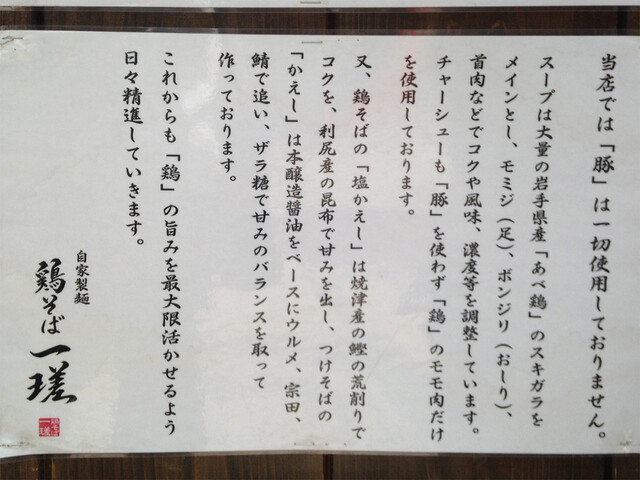 当店では「豚」は一切使用しておりません。
スープは大量の岩手県産「あべ鶏」のスキガラを
メインとし、モミジ（足）、ボンジリ（おしり）、
首肉などでコクや風味、濃度等を調整しています。
チャーシューも「豚」を使わず「鶏」のモモ肉だけ
を使用しております。
又、鶏そばの「塩かえし」は焼津産の鰹の荒削りで
コクを、利尻産の昆布で甘みを出し、つけそばの
「かえし」は本醸造醤油をベースにウルメ、宗田、
鯖で追い、ザラ糖で甘みのバランスを取って
作っております。
これからも「鶏」の旨みを最大限活かせるよう
日々精進していきます。
自家製麺
鶏そば一瑳